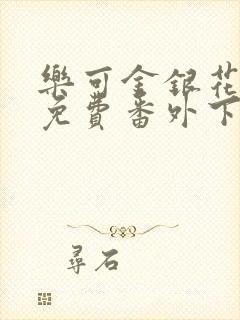 樂可金銀花
免費番外下
尋石